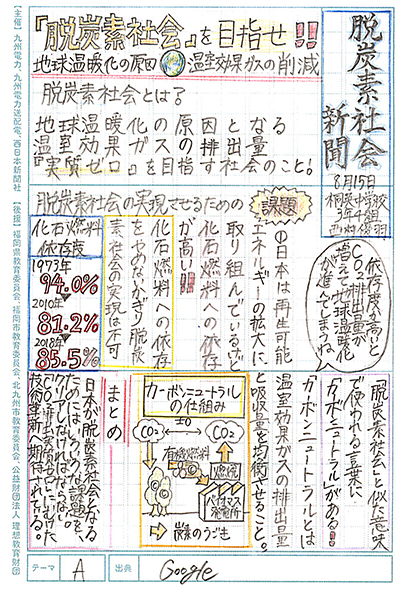 脱炭素社会新聞
8月15日
3年4組
『脱炭素社会』を目指せ!!
地球温暖化の原因 温室効果ガスの削減
脱炭素社会とは？
地球温暖化の原因となる
温室効果ガスの排出量
『実質ゼロ』を目指す社会のこと!
脱炭素社会の実現させるための
課題
①日本は再生可能
エネルギーの拡大に
取り組んでいるけど
化石燃料への依存
が高い!!!
化石燃料への依存
をやめないかぎり脱炭
素社会の実現は不可
化石燃料
依存度
1973年
94.0%
2010年
81.2%
2018年
85.5%
依存度が高いと
CO₂排出量が
増えて地球温暖化
が進んでしまうね
「脱炭素社会」と似た意味
で使われる言葉に
「カーボンニュートラル」がある!!
カーボンニュートラルとは
温室効果ガスの排出量
と吸収量を均衡させること。
カーボンニュートラル
の仕組み
±0
CO₂
CO₂
有機燃料
燃焼
バイオマス
発電所
炭素のうごき
まとめ
日本が脱炭素社会となる
ためにはいろいろな課題を
クリアしなければならない。
技術革新へ期待されている。
テーマ
A
出典
Google
【主催】九州電力、九州電力送配電、西日本新聞社 【後援】福岡県教育委員会、福岡市教育委員会、北九州市教育委員会、公益財団法人 理想教育財団